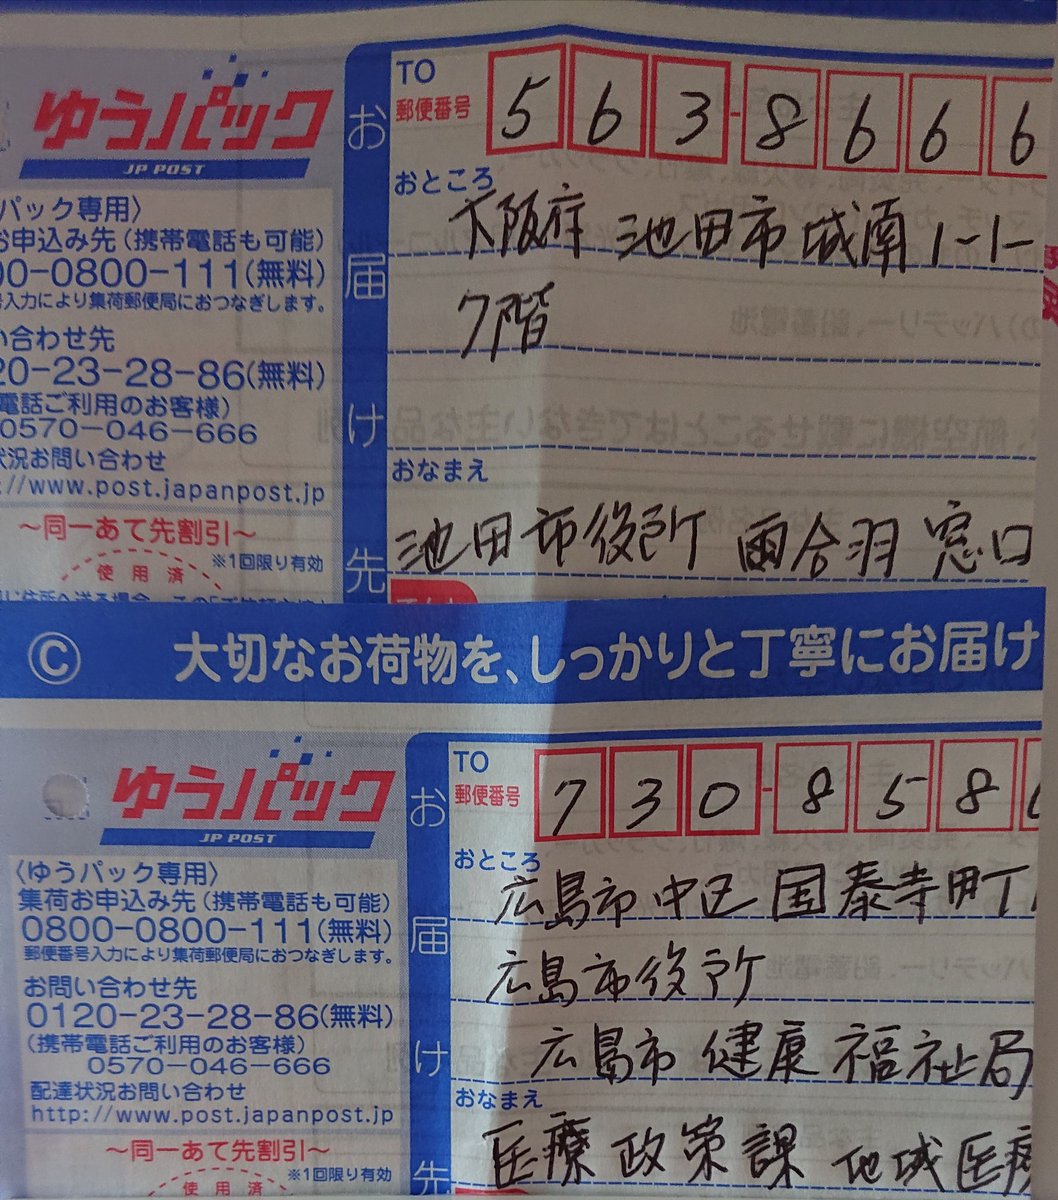 ゆうパック
JP POST
パック専用〉
お申込み先(携帯電話も可能)
00-0800-111(無料)
号入力により集荷郵便局におつなぎします。
い合わせ先
20-23-28-86(無料)
電話ご利用のお客様)
0570-046-666
状況お問い合わせ
://www.post.japanpost.jp
〜同一あて先割引〜
※1回限り有効
使用済
お届け先
TO
郵便番号
563-8666
おところ
大阪府 池田市 城南 1-1-
7階
おなまえ
池田市役所 雨合羽 窓口
Ⓒ 大切なお荷物を、しっかりと丁寧にお届け
ゆうパック
JP POST
〈ゆうパック専用〉
集荷お申込み先(携帯電話も可能)
0800-0800-111(無料)
郵便番号入力により集荷郵便局におつなぎします。
お問い合わせ先
0120-23-28-86(無料)
(携帯電話ご利用のお客様)
0570-046-666
配達状況お問い合わせ
http://www.post.japanpost.jp
〜同一あて先割引〜
※1回限り有効
使用済
お届け先
TO
郵便番号
730-858
おところ
広島市 中区 国泰寺町
広島市役所
広島市 健康 福祉局
おなまえ
医療 政策 課 地域 医療